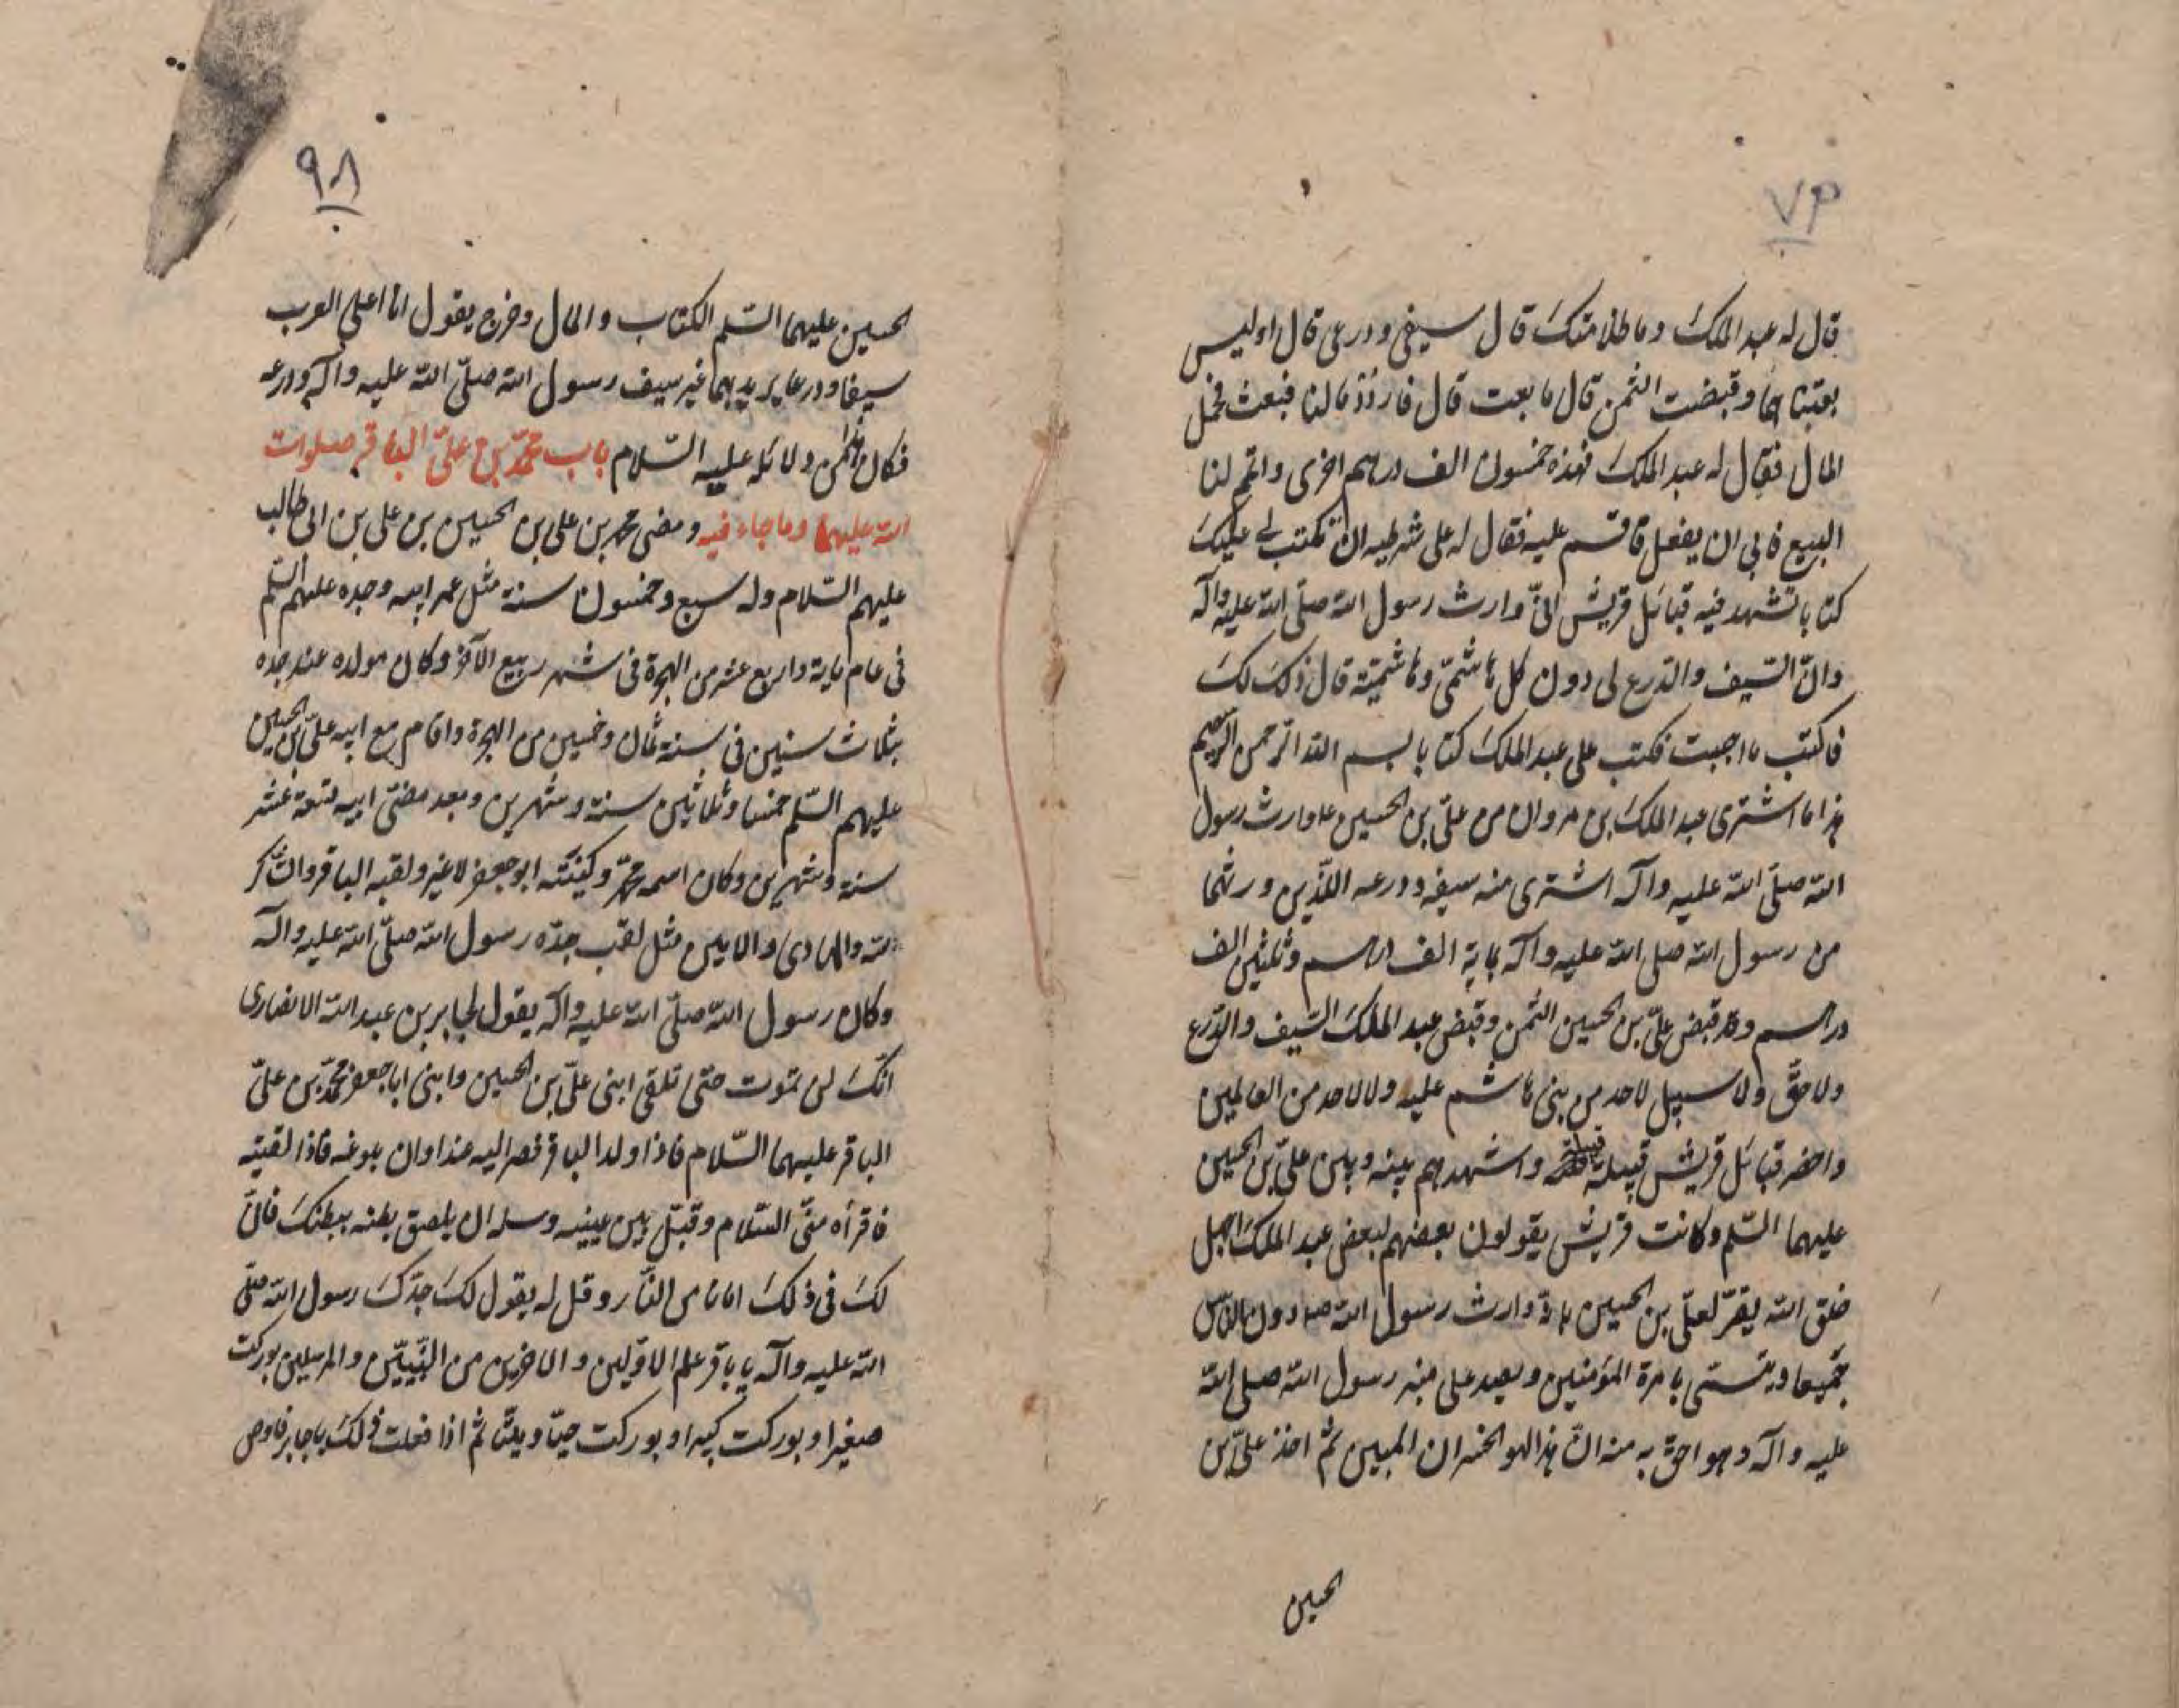 ٧٣
قال له عبد الملك وما ظلامتك قال سيفي ودرعي قال اوليس
بعتناهما وقبضت الثمن قال ما بعت قال فاردد مالنا فبعث فحمل
المال فقال له عبد الملك فهذه خمسون الف دراهم اخرى واتم لنا
البيع فابى ان يفعل فاقسم عليه فقال له على شرطيه ان تكتب لي عليك
كتابا تشهد فيه قبائل قريش انّي وارث رسول الله صلّى الله عليه وآله
وانّ السّيف والدّرع لي دون كل هاشميّ وهاشميّة قال ذلك لك
فاكتب ما اجبت فكتب على عبد الملك كتابا بسم الله الرّحمن الرّحيم
هذا ما اشترى عبد الملك بن مروان من عليّ بن الحسين ع وارث رسول
الله صلّى الله عليه وآله اشترى منه سيفه ودرعه اللّذين ورثهما
من رسول الله صلى الله عليه وآله بماية الف دراهم وثلثين الف
دراهم وقد قبض عليّ بن الحسين الثّمن وقبض عبد الملك السّيف والدّرع
ولا حقّ ولا سبيل لاحد من بني هاشم عليه ولا لاحد من العالمين
واحضر قبائل قريش قبيلة قبيلة واشهدهم بينه وبين عليّ بن الحسين
عليهما السّلم وكانت قريش يقولون بعضهم لبعض عبد الملك اجهل
خلق الله يقرّ لعليّ بن الحسين بانّه وارث رسول الله ص دون النّاس
جميعا ويتسمّى بامرة المؤمنين ويصعد على منبر رسول الله صلى الله
عليه وآله وهو احقّ به منه انّ هذا لهو الخسران المبين ثمّ اخذ عليّ بن
الحسين
٩٨
الحسين عليهما السّلم الكتاب والمال وخرج يقول انا اعلى العرب
سيفا ودرعا يريد بهما غير سيف رسول الله صلّى الله عليه وآله ودرعه
فكان هذا من دلائله عليه السّلام باب محمّد بن عليّ الباقر صلوات
الله عليهما وما جاء فيه ومضى محمد بن علي بن الحسين بن علي بن ابي طالب
عليهم السّلام وله سبع وخمسون سنة مثل عمر ابيه وجده عليهم السّلم
في عام ماية واربع عشر من الهجرة في شهر ربيع الآخر وكان مولده عند جده
بثلاث سنين في سنة ثمان وخمسين من الهجرة واقام مع ابيه عليّ بن الحسين
عليهم السّلم خمسا وثلاثين سنة وشهرين وبعد مضيّ ابيه تسعة عشر
سنة وشهرين وكان اسمه محمّد وكنيته ابو جعفر لا غير ولقبه الباقر والشّاكر
لله والهادي والامين مثل لقب جدّه رسول الله صلّى الله عليه وآله
وكان رسول الله صلّى الله عليه وآله يقول لجابر بن عبد الله الانصاري
انّك لن تموت حتى تلقى ابني عليّ بن الحسين وابني ابا جعفر محمّد بن عليّ
الباقر عليهما السّلام فاذا ولد الباقر فصر اليه عند اوان بلوغه فاذا لقيته
فاقرأه منّي السّلام وقبّل بين عينيه وسله ان يلصق بطنه ببطنك فانّ
لك في ذلك امانا من النّار وقل له يقول لك جدّك رسول الله صلّى
الله عليه وآله يا باقر علم الاوّلين والاخرين من النّبيّين والمرسلين بوركت
صغيرا وبوركت كبيرا وبوركت حيّا وميّتا ثمّ اذا فعلت ذلك يا جابر فاوص